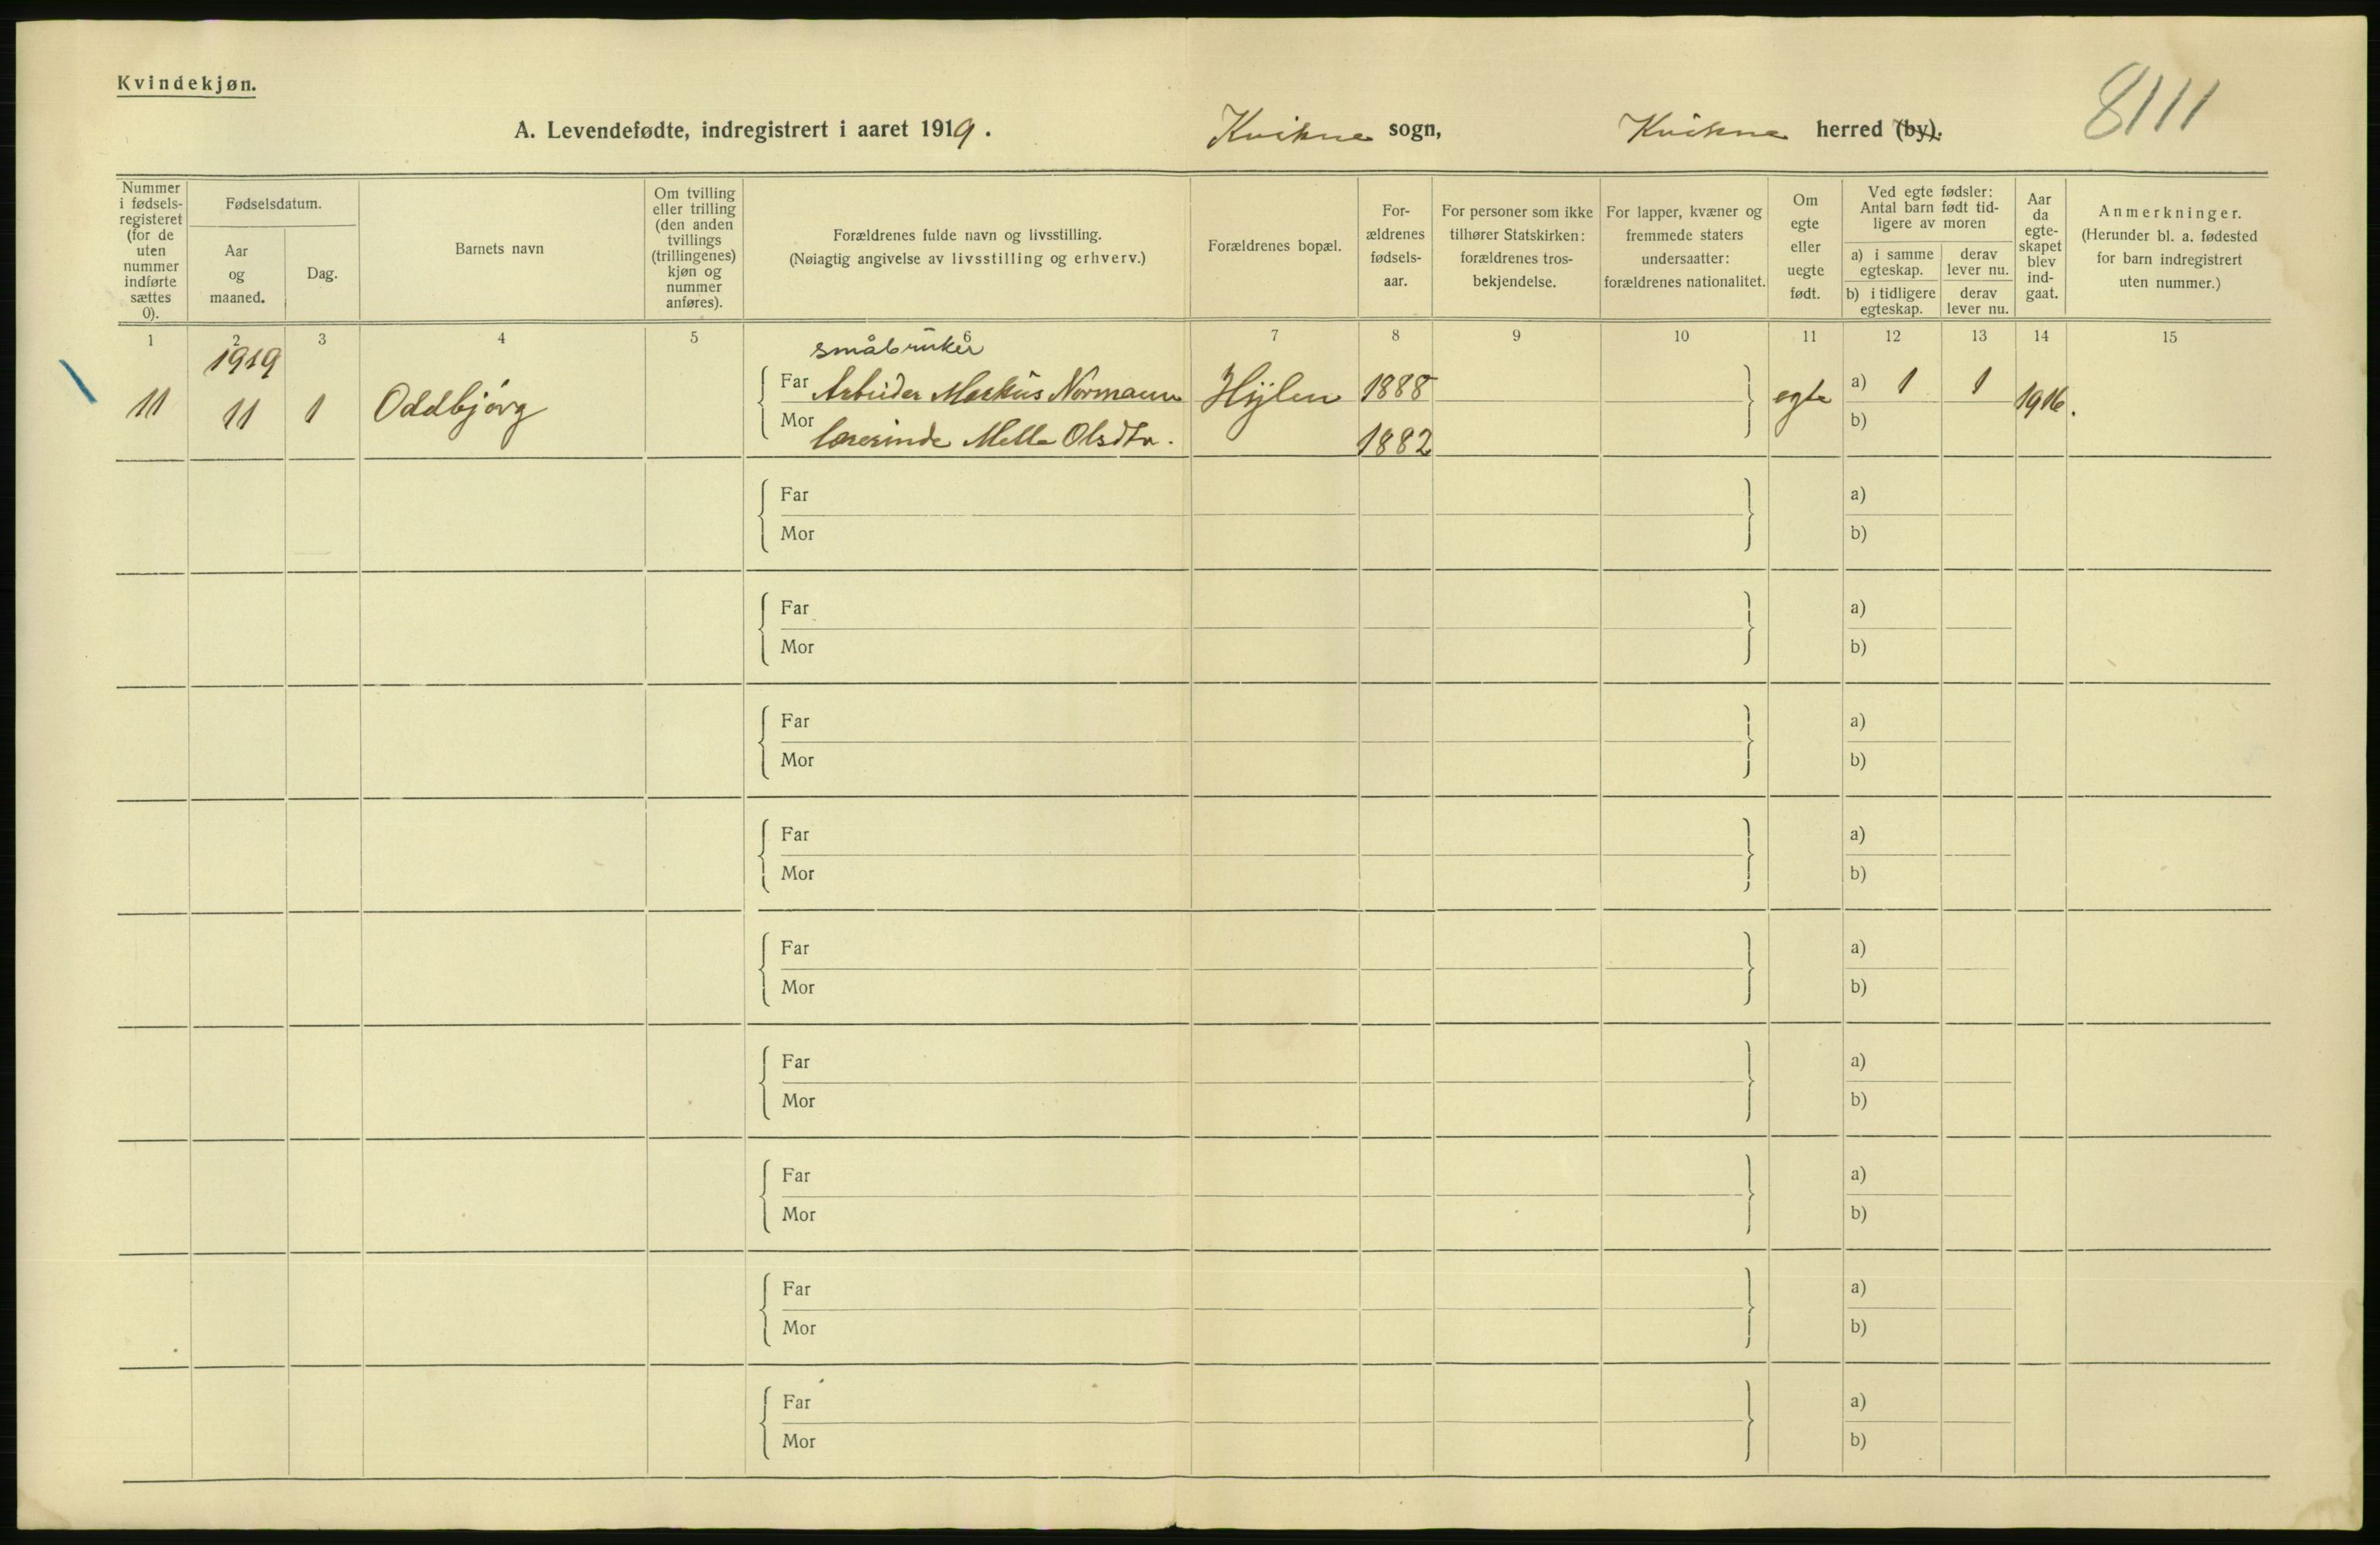 Kvindekjøn.
8111
A. Levendefødte, indregistrert i aaret 1919. Kvikne sogn, Kvikne herred (by).
Nummer i fødsels-registeret (for de uten nummer indførte sættes 0).
Fødselsdatum.
Aar og maaned.
Dag.
Barnets navn
Om tvilling eller trilling (den anden tvillings (trillingenes) kjøn og nummer anføres).
Forældrenes fulde navn og livsstilling.
(Nøiagtig angivelse av livsstilling og erhverv.)
Forældrenes bopæl.
For-ældrenes fødsels-aar.
For personer som ikke tilhører Statskirken: forældrenes tros-bekjendelse.
For lapper, kvæner og fremmede staters undersaatter: forældrenes nationalitet.
Om egte eller uegte født.
Ved egte fødsler: Antal barn født tid-ligere av moren
a) i samme egteskap.
derav lever nu.
b) i tidligere egteskap.
derav lever nu.
Aar da egte-skapet blev ind-gaat.
Anmerkninger.
(Herunder bl. a. fødested for barn indregistrert uten nummer.)
1 2 3 4 5 6 7 8 9 10 11 12 13 14 15
1919 småbruker
11 11 1 Oddbjörg Far Arbeider Markus Normann Hylen 1888 egte a) 1 1 1916.
Mor lærerinde Olsdtr. 1882 b)
Far a)
Mor b)
Far a)
Mor b)
Far a)
Mor b)
Far a)
Mor b)
Far a)
Mor b)
Far a)
Mor b)
Far a)
Mor b)
Far a)
Mor b)
Far a)
Mor b)